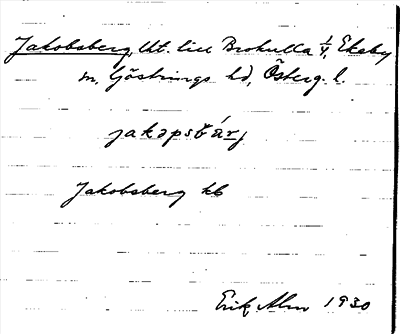 Jakobsberg, lht. till Brokulla 1/4, Ekeby
sn, Göstrings hd, Österg. l.
jakåpsbärj
Jakobsberg kb
Erik Alm 1930